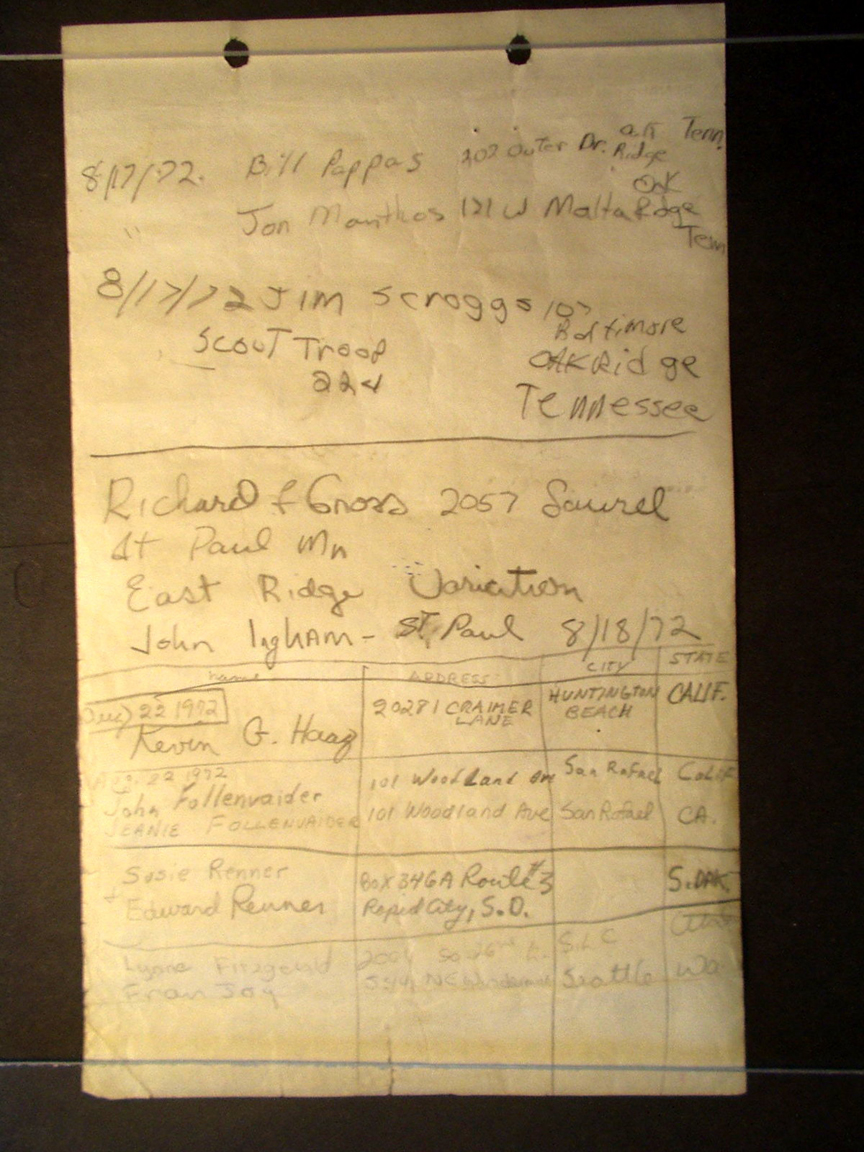 8/17/72. Bill Pappas 202 Outer Dr. Oak Ridge Tenn
" Jon Manthos 121 W Malta Oak Ridge Tenn
8/17/72 Jim Scroggs 107
Baltimore
Scout Troop
OAK Ridge
224
Tennessee
Richard L Gross 2057 Laurel
St Paul Mn
East Ridge Variation
John Ingham - St. Paul 8/18/72
name ADDRESS CITY STATE
Aug 22 1972
Kevin G. Haag 20281 CRAIMER LANE HUNTINGTON BEACH CALIF.
Aug. 22 1972
John Follenvaider 101 Woodland Ave San Rafael Calif
JEANIE FOLLENVAIDER 101 Woodland Ave San Rafael CA.
Susie Renner Box 346A Route #3 S. DAK.
+ Edward Renner Rapid City, S.D.
Lynne Fitzgerald So. S.L.C.
Fran Joy NE Seattle Wa